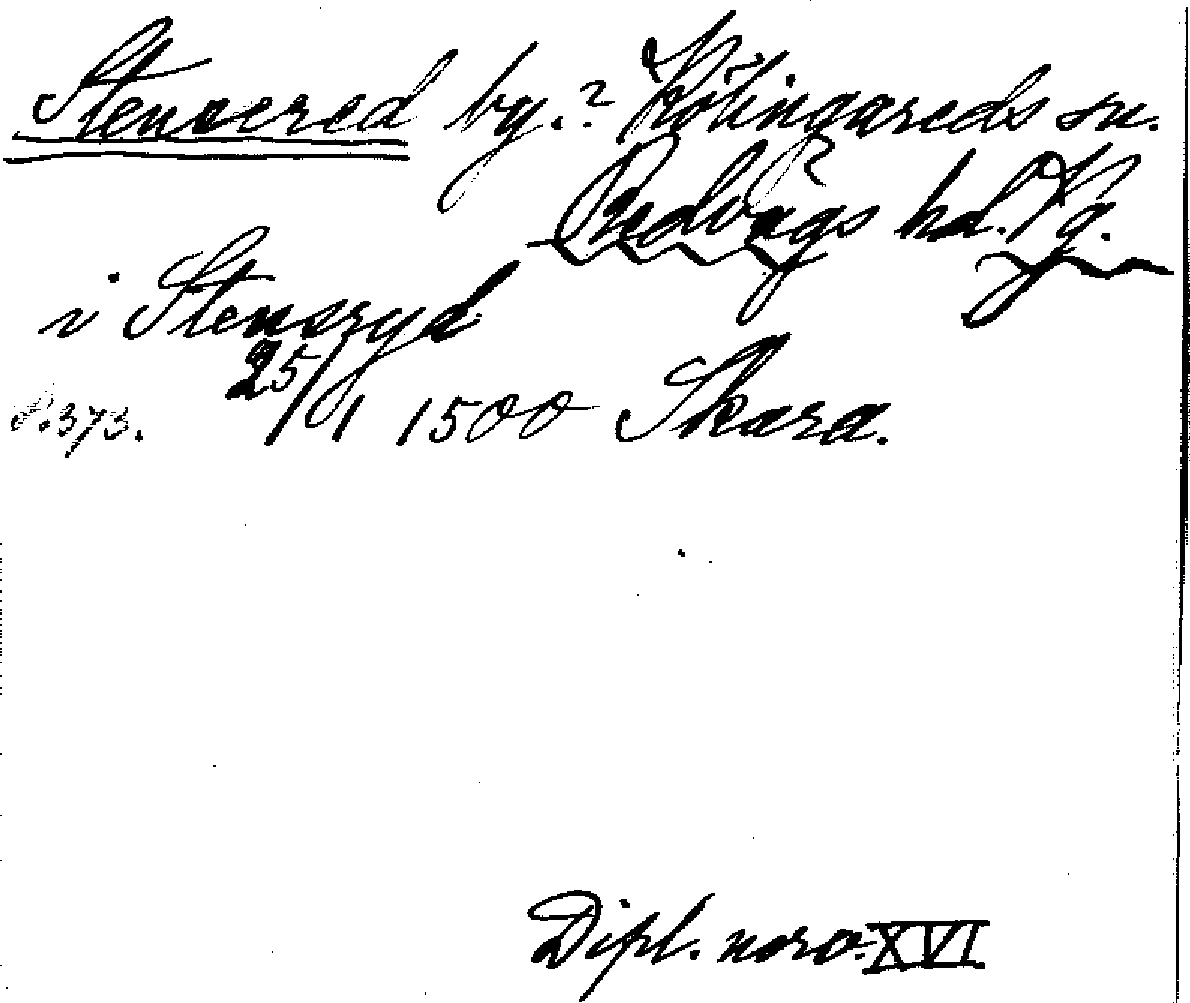 Stensered by.? Kölingareds sn.
Redvägs hd. Vg.
i Stensryd
25/1 1500 Skara.
s. 373.
Dipl. norv. XVI